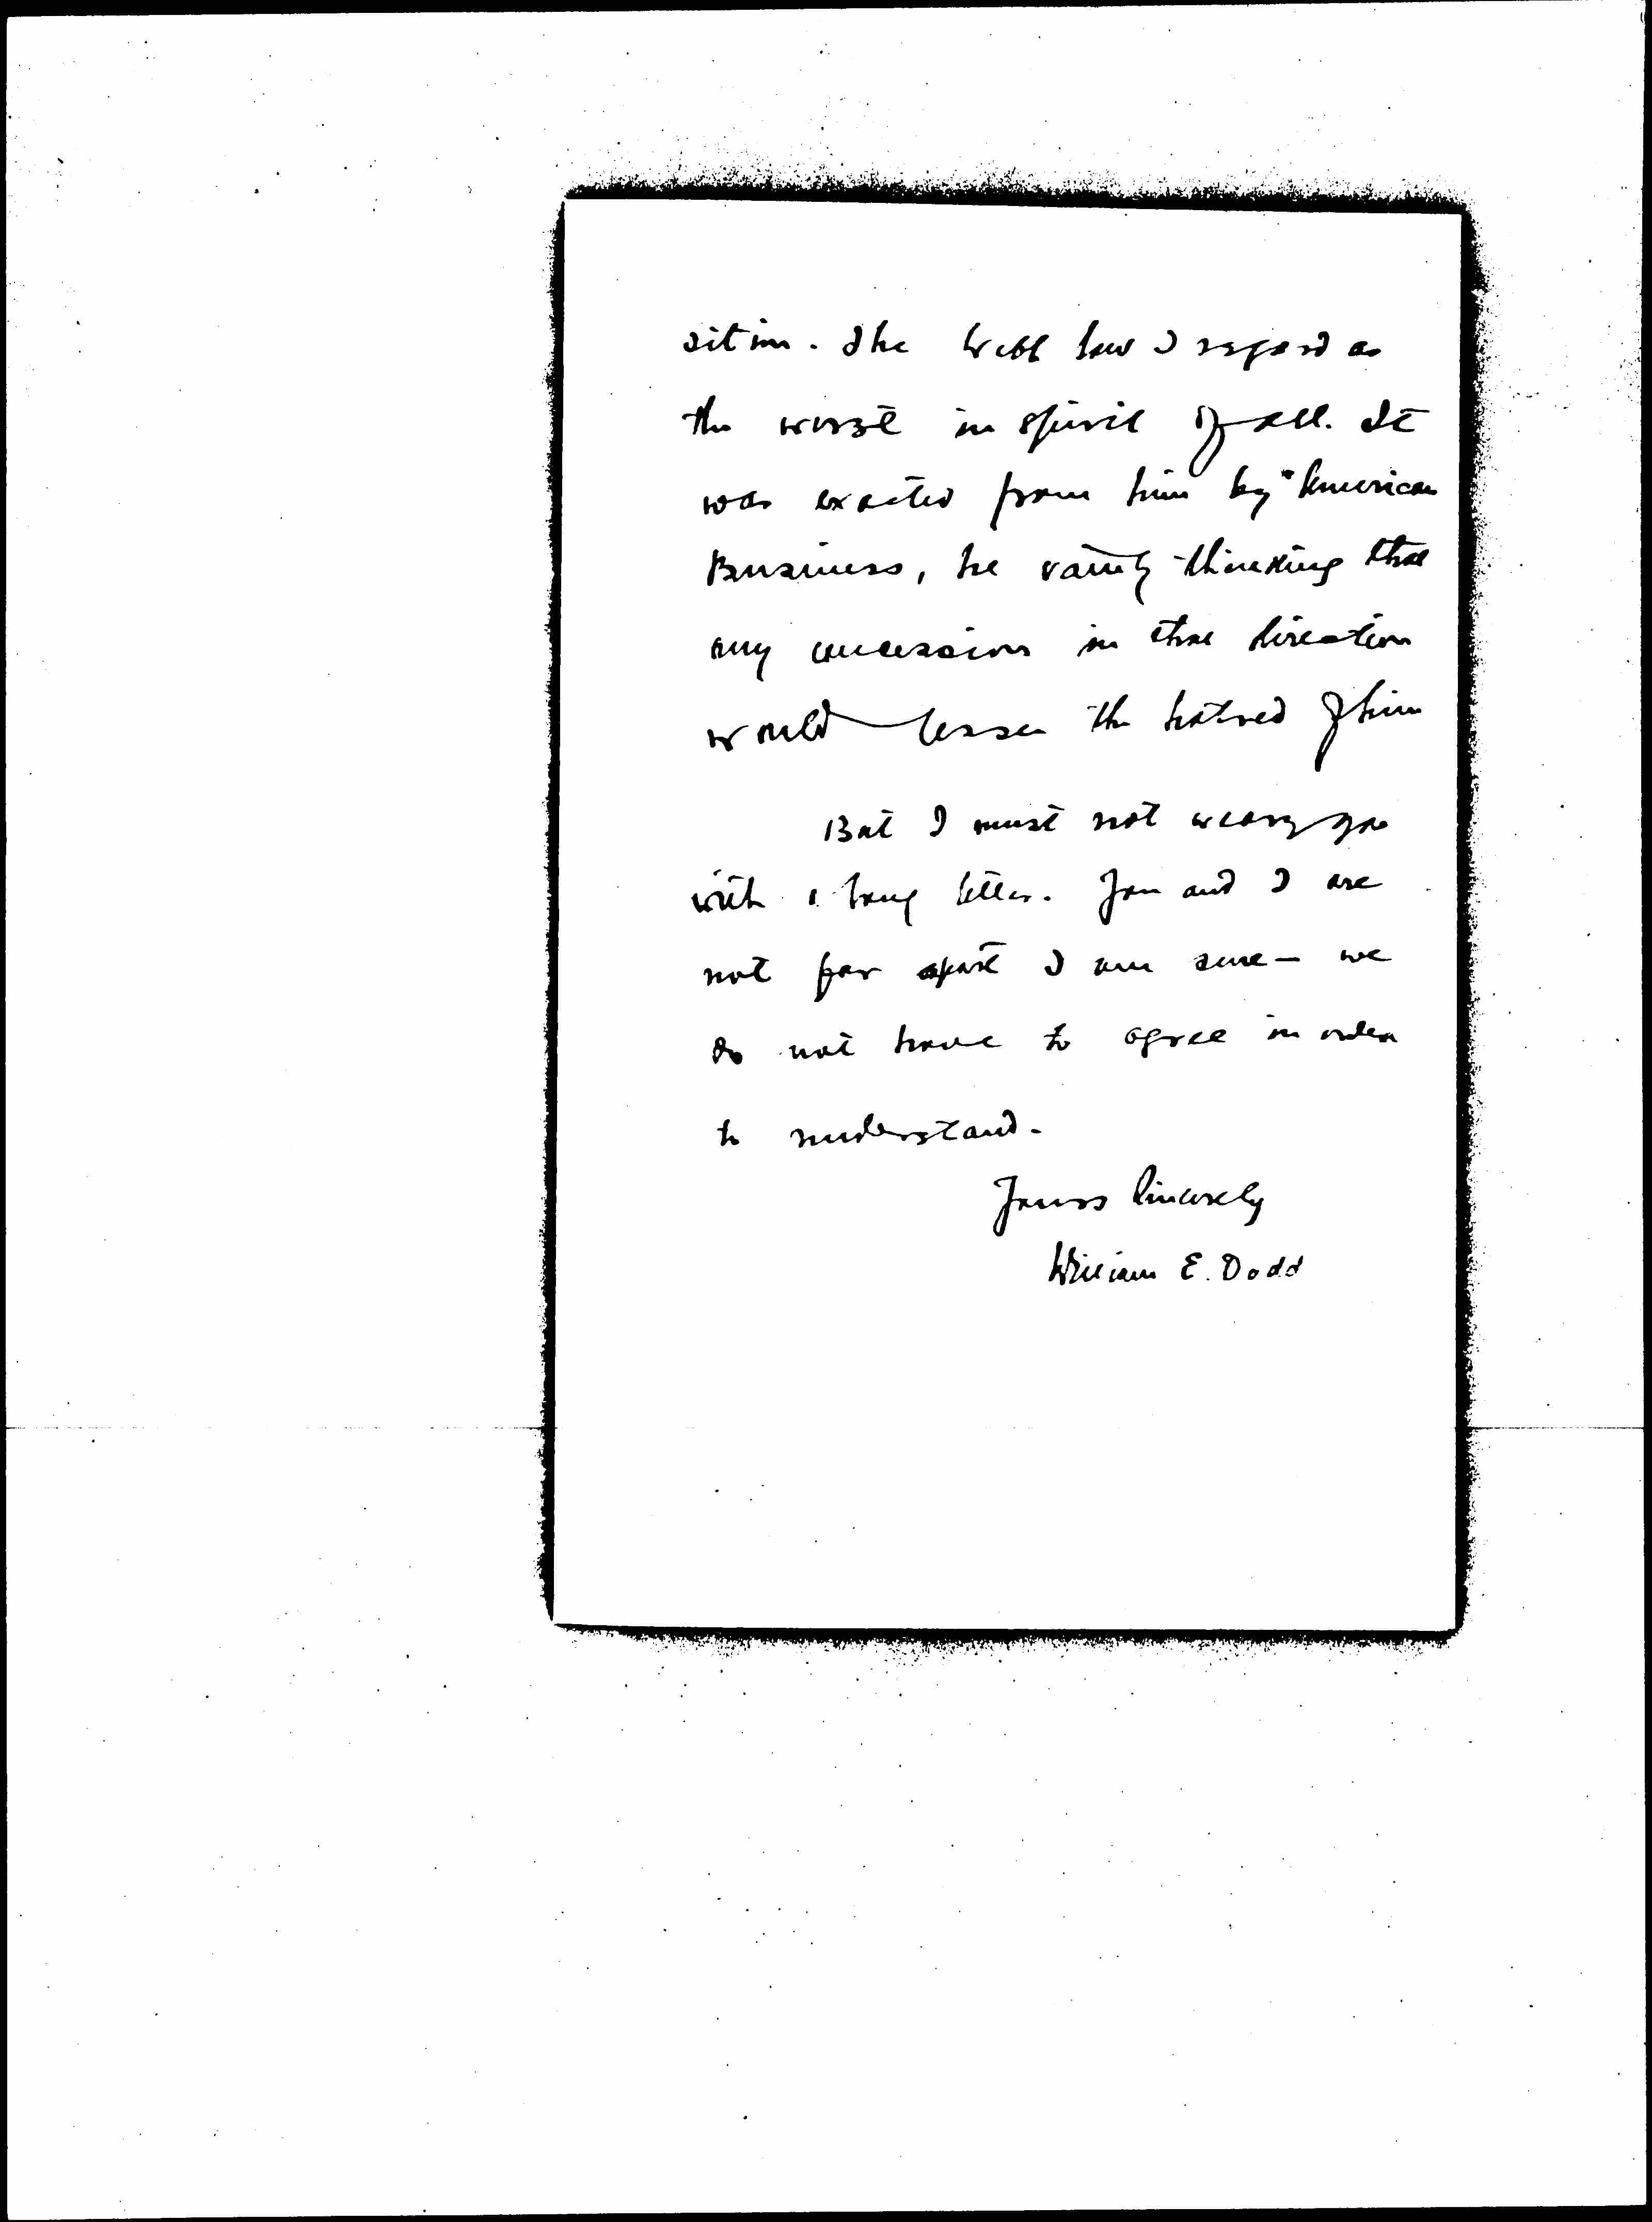 sition. The Webb law I regard as
the worst in spirit of all. It
was exacted from him by American
Business, he vainly thinking that
any concession in that direction
would lessen the hatred of him
But I must not weary you
with a long letter. You and I are
not far apart I am sure — we
do not have to agree in order
to understand.
Yours Sincerely
William E. Dodd